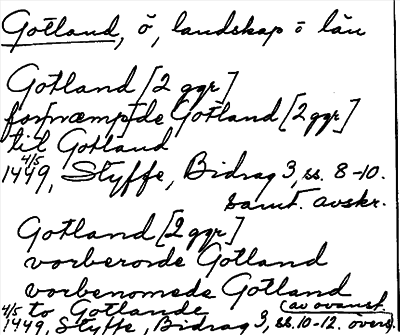 Gotland, ö, landskap o län
Gotland [2 ggr]
fornæmpde Gotland [2 ggr]
til Gotland
4/5
1449, Styffe, Bidrag 3, ss. 8-10.
samt. avskr.
Gotland [2 ggr]
vorberorde Gotland
vorbenomede Gotland
to Gotlande (av ovanst.
4/5
1449, Styffe, Bidrag 3, ss. 10-12. övers.